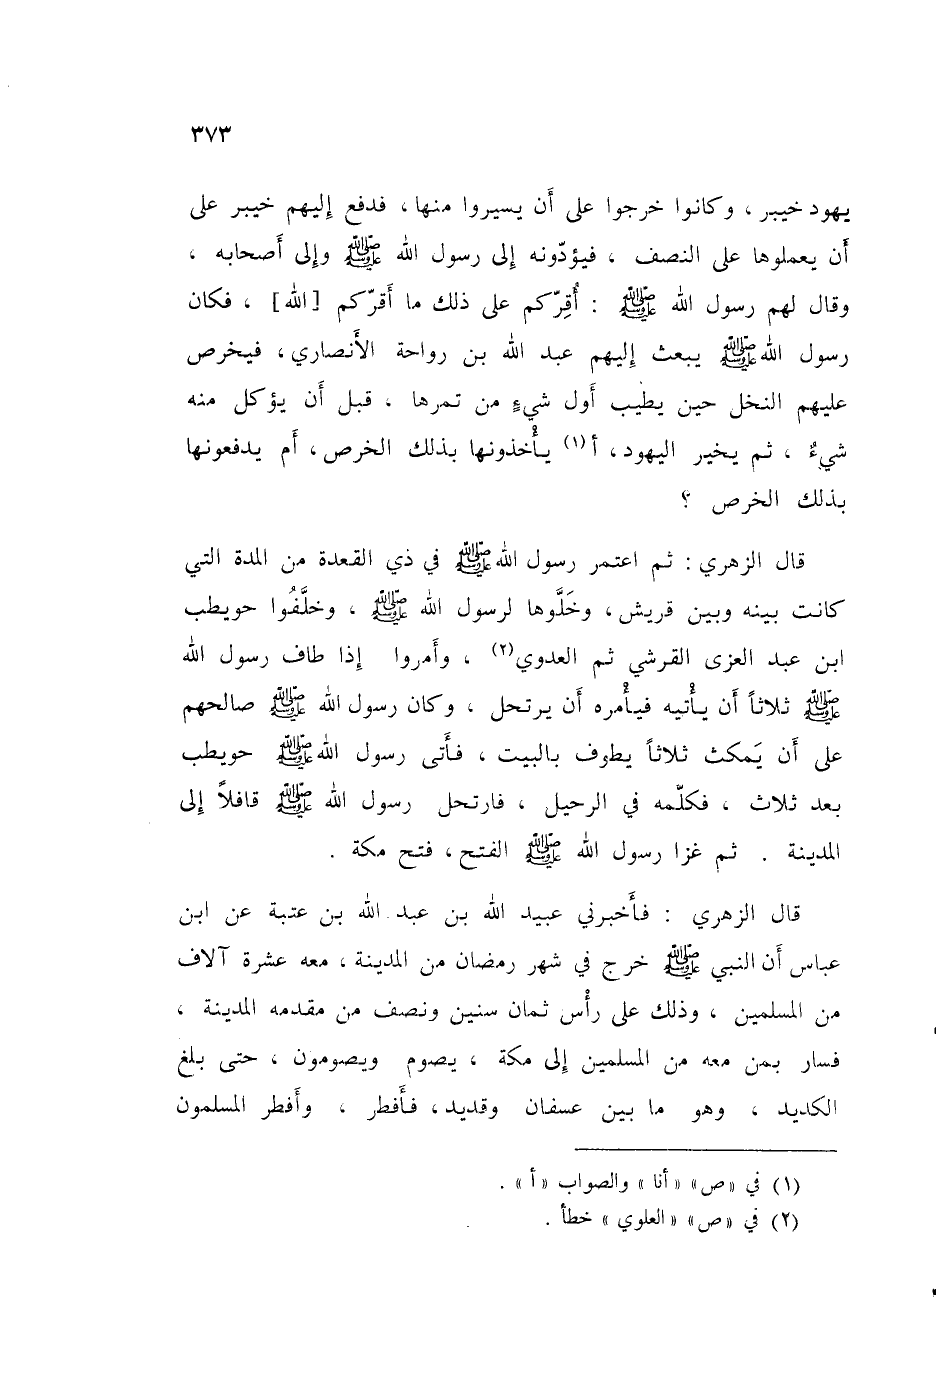 ٣٧٣
يهود خيبر ، وكانوا خرجوا على أَن يسيروا منها ، فدفع إليهم خيبر على
أَن يعملوها على النصف ، فيؤدّونه إلى رسول الله ﷺ وإلى أَصحابه ،
وقال لهم رسول الله ﷺ : أُقِرّكم على ذلك ما أَقرّكم [الله] ، فكان
رسول الله ﷺ يبعث إليهم عبد الله بن رواحة الأَنصاري ، فيخرص
عليهم النخل حين يطيب أَول شيءٍ من تمرها ، قبل أَن يؤكل منه
شيءٌ ، ثم يخير اليهود ، أ(١) يأْخذونها بذلك الخرص ، أَم يدفعونها
بذلك الخرص ؟
قال الزهري : ثم اعتمر رسول الله ﷺ في ذي القعدة من المدة التي
كانت بينه وبين قريش ، وخَلَّوها لرسول الله ﷺ ، وخلَّفُوا حويطب
ابن عبد العزى القرشي ثم العدوي(٢) ، وأَمروا إذا طاف رسول الله
ﷺ ثلاثاً أَن يأْتيه فيأْمره أَن يرتحل ، وكان رسول الله ﷺ صالحهم
على أَن يَمكث ثلاثاً يطوف بالبيت ، فأَتى رسول الله ﷺ حويطب
بعد ثلاث ، فكلّمه في الرحيل ، فارتحل رسول الله ﷺ قافلاً إلى
المدينة . ثم غزا رسول الله ﷺ الفتح ، فتح مكة .
قال الزهري : فأَخبرني عبيد الله بن عبد الله بن عتبة عن ابن
عباس أَن النبي ﷺ خرج في شهر رمضان من المدينة ، معه عشرة آلاف
من المسلمين ، وذلك على رأْس ثمان سنين ونصف من مقدمه المدينة ،
فسار بمن معه من المسلمين إلى مكة ، يصوم ويصومون ، حتى بلغ
الكديد ، وهو ما بين عسفان وقديد ، فأَفطر ، وأَفطر المسلمون
(١) في «ص» «أنا» والصواب «أ» .
(٢) في «ص» «العلوي» خطأ .